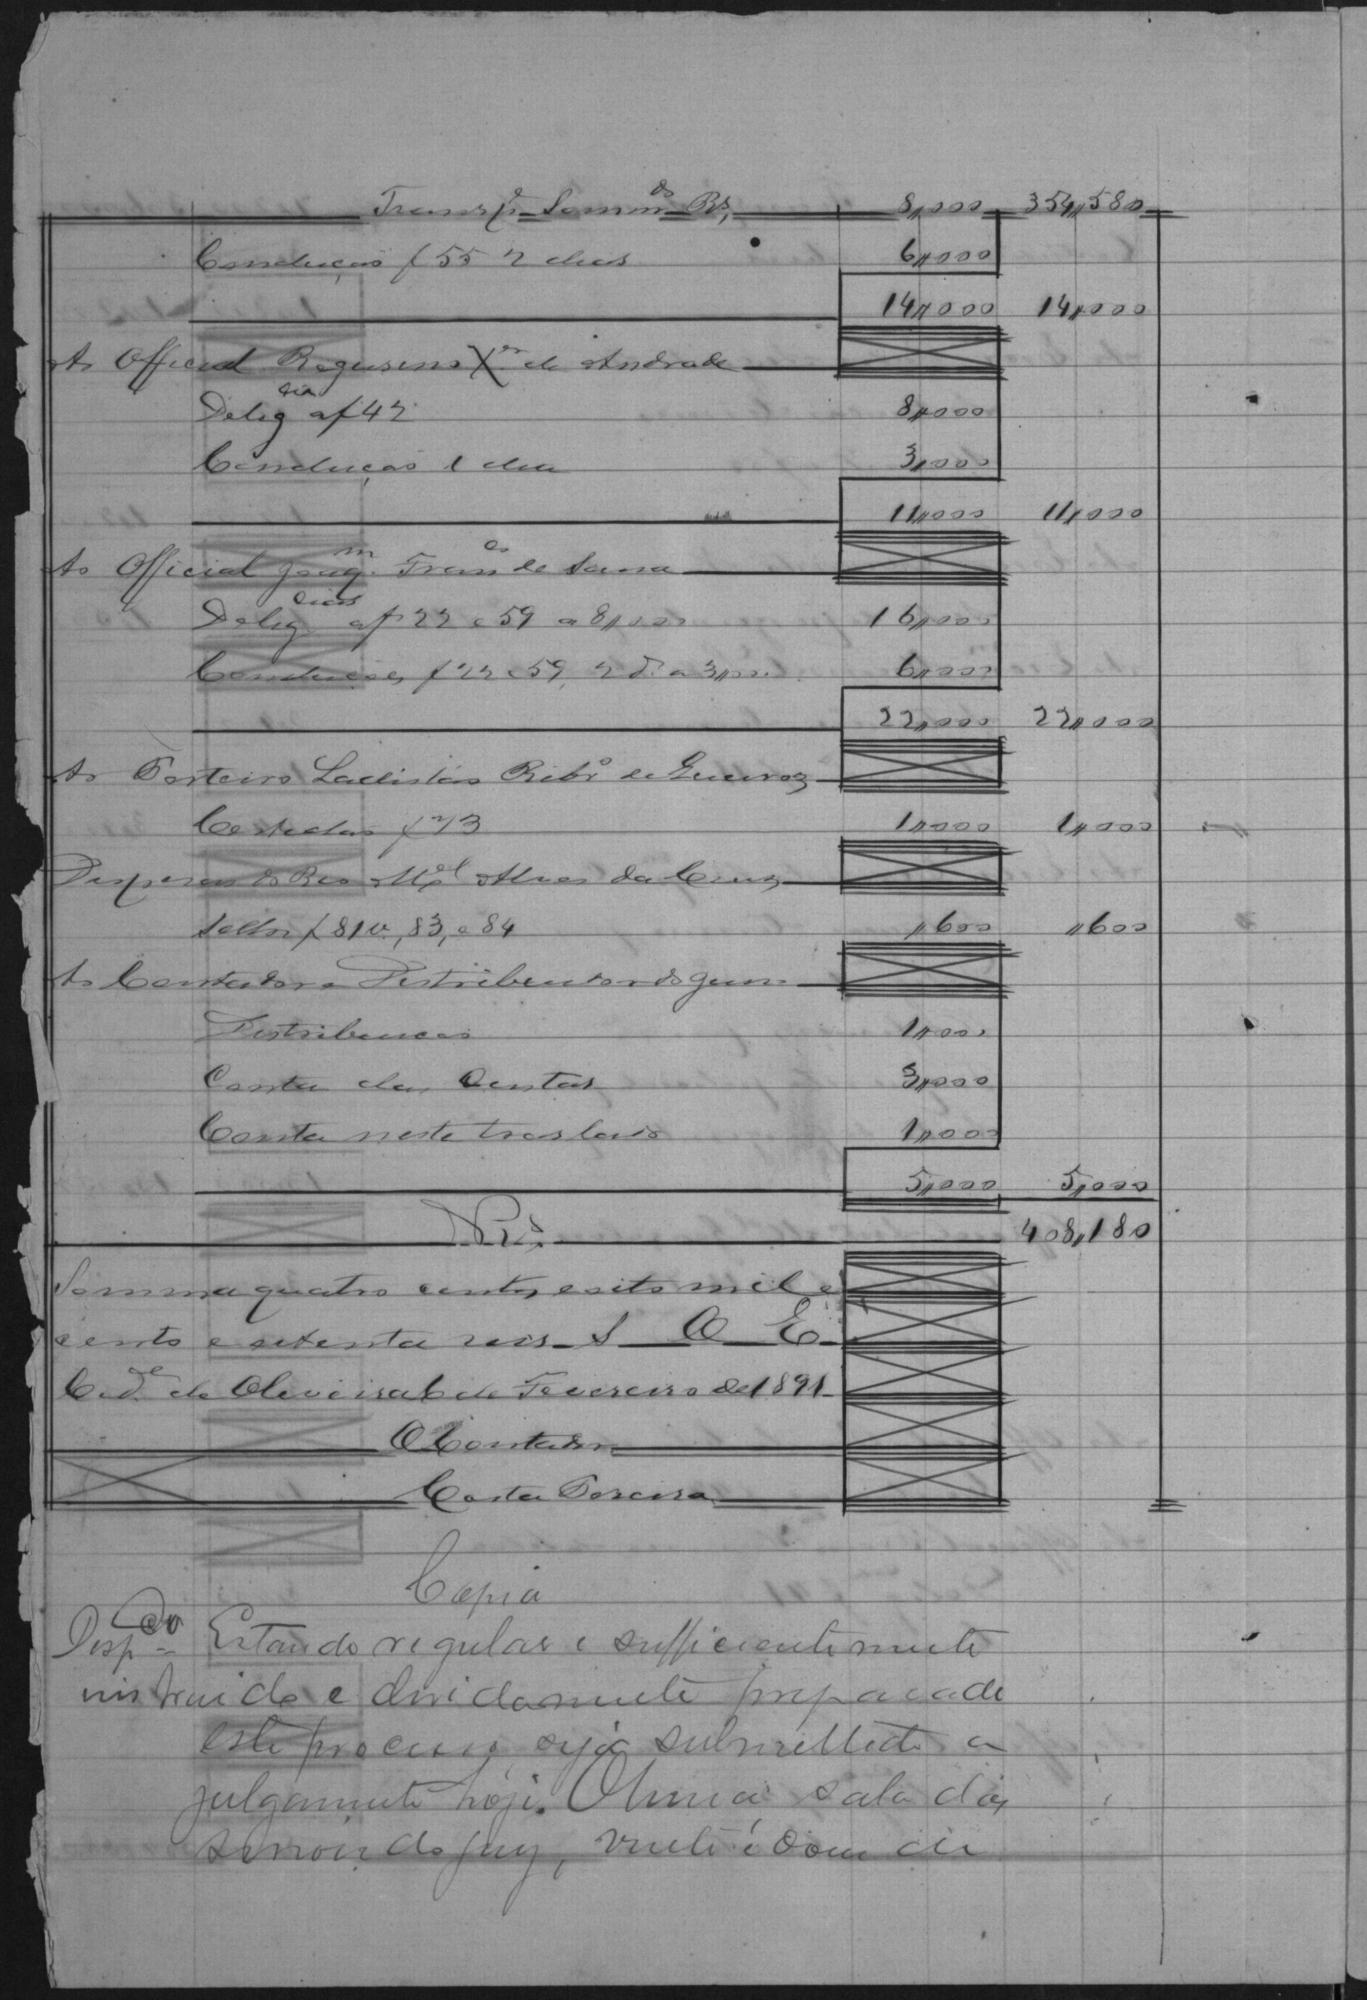 Transp.e Somm.as Rs, 8,,000 354,,580
Conducção f 55 2 dias 6,,000
14,,000 14,,000
Ao Official X.er de Andrade
Delig.cia af 42 8,,000
Conducção 1 dia 3,,000
11,,000 11,,000
Ao Official Joaq.m Fran.co de Sanna
Delig.cias af 22 e 59 a 8,,000 16,,000
Conducções f 22 e 59, 2 d.as a 3,,000 6,,000
22,,000 22,,000
Ao Porteiro Ladislao Ribr.o de Queiroz
Certidão f 73 1,,000 1,,000
Despezas do Reo M.el Alves da Cruz
Sellos f 81v., 83, e 84 ,,600 ,,600
Ao Contador e Distribuidor do Juizo
Distribuição 1,,000
Conta das Custas 3,,000
Conta neste traslado 1,,000
5,,000 5,,000
Rs. 408,,180
Somma quatro centos e oito mil e
cento e setenta reis S O E
Cid.e de Oliveira 6 de Fevereiro de 1891
O Contador
Costa Pereira
Copia
Desp.o Estando regular e sufficientemente
instruido e devidamente preparado
este processo seja submettido a
julgamento hoje. Oliveira sala das
sessões do jury, vinte e dous de